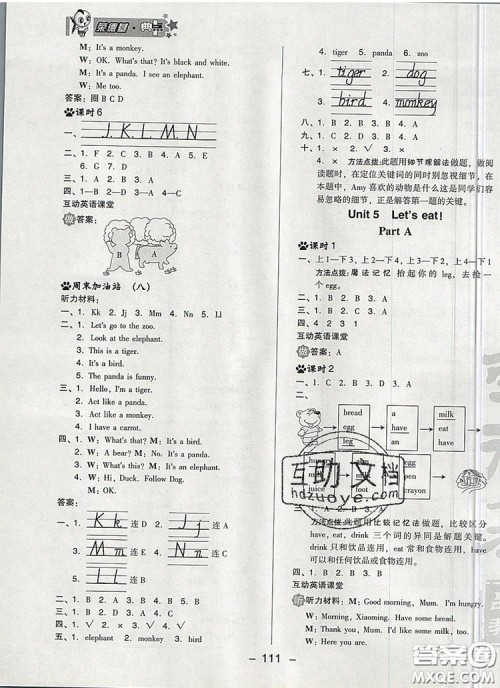 荣德基·典点
M: It's a monkey.
W: OK. What's that? It's black and white.
M: It's a panda. I see an elephant.
W: Me too.
答案：圈 B C D
课时 6
一、J, K, L, M, N
二、1. F 2. A 3. C 4. D 5. B
6. G 7. D 8. B
三、1. B 2. C 3. A
四、1. D 2. C 3. A 4. B
互动英语课堂
做 答案：
A B
周末加油站 （八）
听力材料：
一、1. Kk Jj Mm
2. Ll Nn Jj
二、1. Let's go to the zoo.
2. Look at the elephant.
3. This is a tiger.
4. This is a bird.
三、1. Hello, I'm a tiger.
2. Act like a panda.
3. Act like a monkey.
4. I have a carrot.
四、1. W: What's this? M: It's an elephant.
2. W: A bear? M: No. It's a panda.
3. W: Wow! A tiger. M: Yes.
4. W: Hi, Duck. Follow Dog.
M: OK.
答案：
一、1. K k 连 D 2. J j 连 A
3. M m 连 E 4. N n 连 C
5. L L 连 B
二、1. B 2. A 3. A 4. B
三、1. B 2. A 3. A 4. B
四、1. √ 2. × 3. √ 4. ×
五、1. elephant 2. monkey 3. bird
4. tiger 5. panda 6. zoo
六、1. tiger 2. dog
3. bird 4. monkey
八、1. B 2. D 3. A 4. C
九、1. A 2. B 3. A 4. B
十、1. × 2. √
3. × 4. × 方法点拨：此题用细节理解法做题，做阅
读题时，在定位关键词的同时别忽视细节，在
本题中，Amy 喜欢的动物是什么这是同学们容
易忽略的细节，正是解答第一题的关键。
Unit 5 Let's eat!
Part A
课时 1
一、上1—下3，上2—下1，上3—下2，上4—下4
二、1. C 2. A 3. B 4. A
方法点拨：魔法记忆 抬起你的 leg, 去捡一个
egg.
三、1. B 2. B 3. A
四、4 2 3 1
互动英语课堂
做 答案：A
课时 2
bread
egg
leg
a
have
an
milk
eat
have
milk
juice
foot
eat
pen
crayon
方法点拨：此题用比较记忆法做题，比较区分
have, eat, drink 三个词的异同是解题关键。
drink 只和饮品连用，eat 常和食物连用，have
可以和任何饮品或食物连用。
四、1. B 2. B 3. A 4. A
互动英语课堂
听 听力材料：M: Good morning, Mum. I'm hungry.
W: Morning, Xiaoming. Have some bread.
M: Thank you, Mum. I'd like some milk.
W: Here you are.
互助文档
hdzuoye.com
— 111 —
答案圈
MXQE.COM